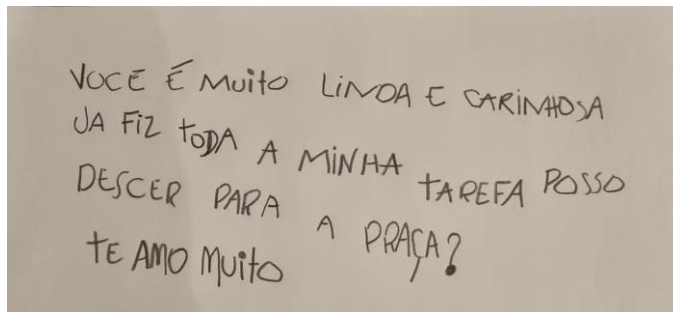 VOCE É MUito LiNDA E CARiNHOSA
JA FiZ toDA A MiNHA tAREFA POSSO
DESCER PARA A PRAÇA?
tE AMO MUito